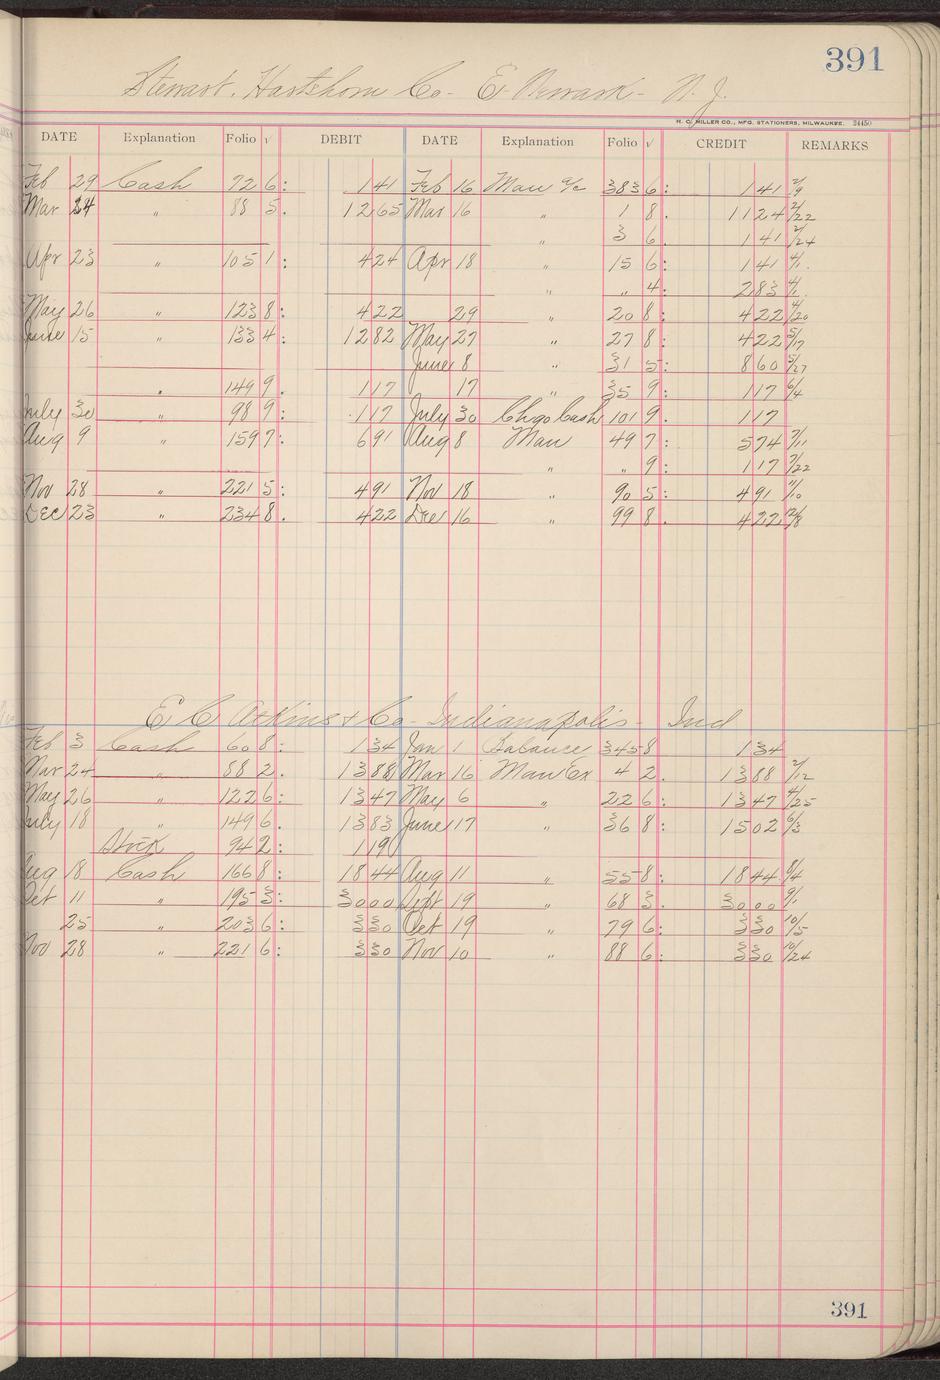 391
Stewart. Hartshorn Co- E. Newark- N. J.
H. C. MILLER CO., MFG. STATIONERS, MILWAUKEE. 24450
DATE Explanation Folio √ DEBIT DATE Explanation Folio √ CREDIT REMARKS
Feb 29 Cash 72 6: 1 41 Feb 16 Man a/c 383 6: 1 41 2/9
Mar 24 " 88 5. 12 65 Mar 16 " 1 8. 11 24 2/22
" 3 6. 1 41 2/24
Apr 23 " 105 1: 4 24 Apr 18 " 15 6: 1 41 4/1
" " 4: 2 83 4/1
May 26 " 123 8: 4 22 29 " 20 8: 4 22 4/20
June 15 " 133 4: 12 82 May 27 " 27 8: 4 22 5/17
June 8 " 31 5: 8 60 5/27
" 149 9. 1 17 17 " 35 9: 1 17 6/4
July 30 " 98 9: 1 17 July 30 Chgo Cash 101 9. 1 17
Aug 9 " 159 7: 6 91 Aug 8 Man 49 7: 5 74 7/11
" " 9: 1 17 7/22
Nov 28 " 221 5: 4 91 Nov 18 " 90 5: 4 91 11/10
Dec 23 " 234 8. 4 22 Dec 16 " 99 8. 4 22 12/8
E C Atkins & Co- Indianapolis- Ind
Feb 3 Cash 60 8: 1 34 Jan 1 Balance 345 8 1 34
Mar 24 " 88 2. 13 88 Mar 16 Man Ex 4 2. 13 88 2/12
May 26 " 122 6: 13 47 May 6 " 22 6: 13 47 4/25
July 18 " 149 6. 13 83 June 17 " 36 8: 15 02 6/3
Stock 94 2: 1 19
Aug 18 Cash 166 8: 18 44 Aug 11 " 55 8: 18 44 8/4
Oct 11 " 195 3: 30 00 Sept 19 " 68 3. 30 00 9/1
25 " 203 6: 3 30 Oct 19 " 79 6: 3 30 10/5
Nov 28 " 221 6: 3 30 Nov 10 " 88 6: 3 30 10/24
391